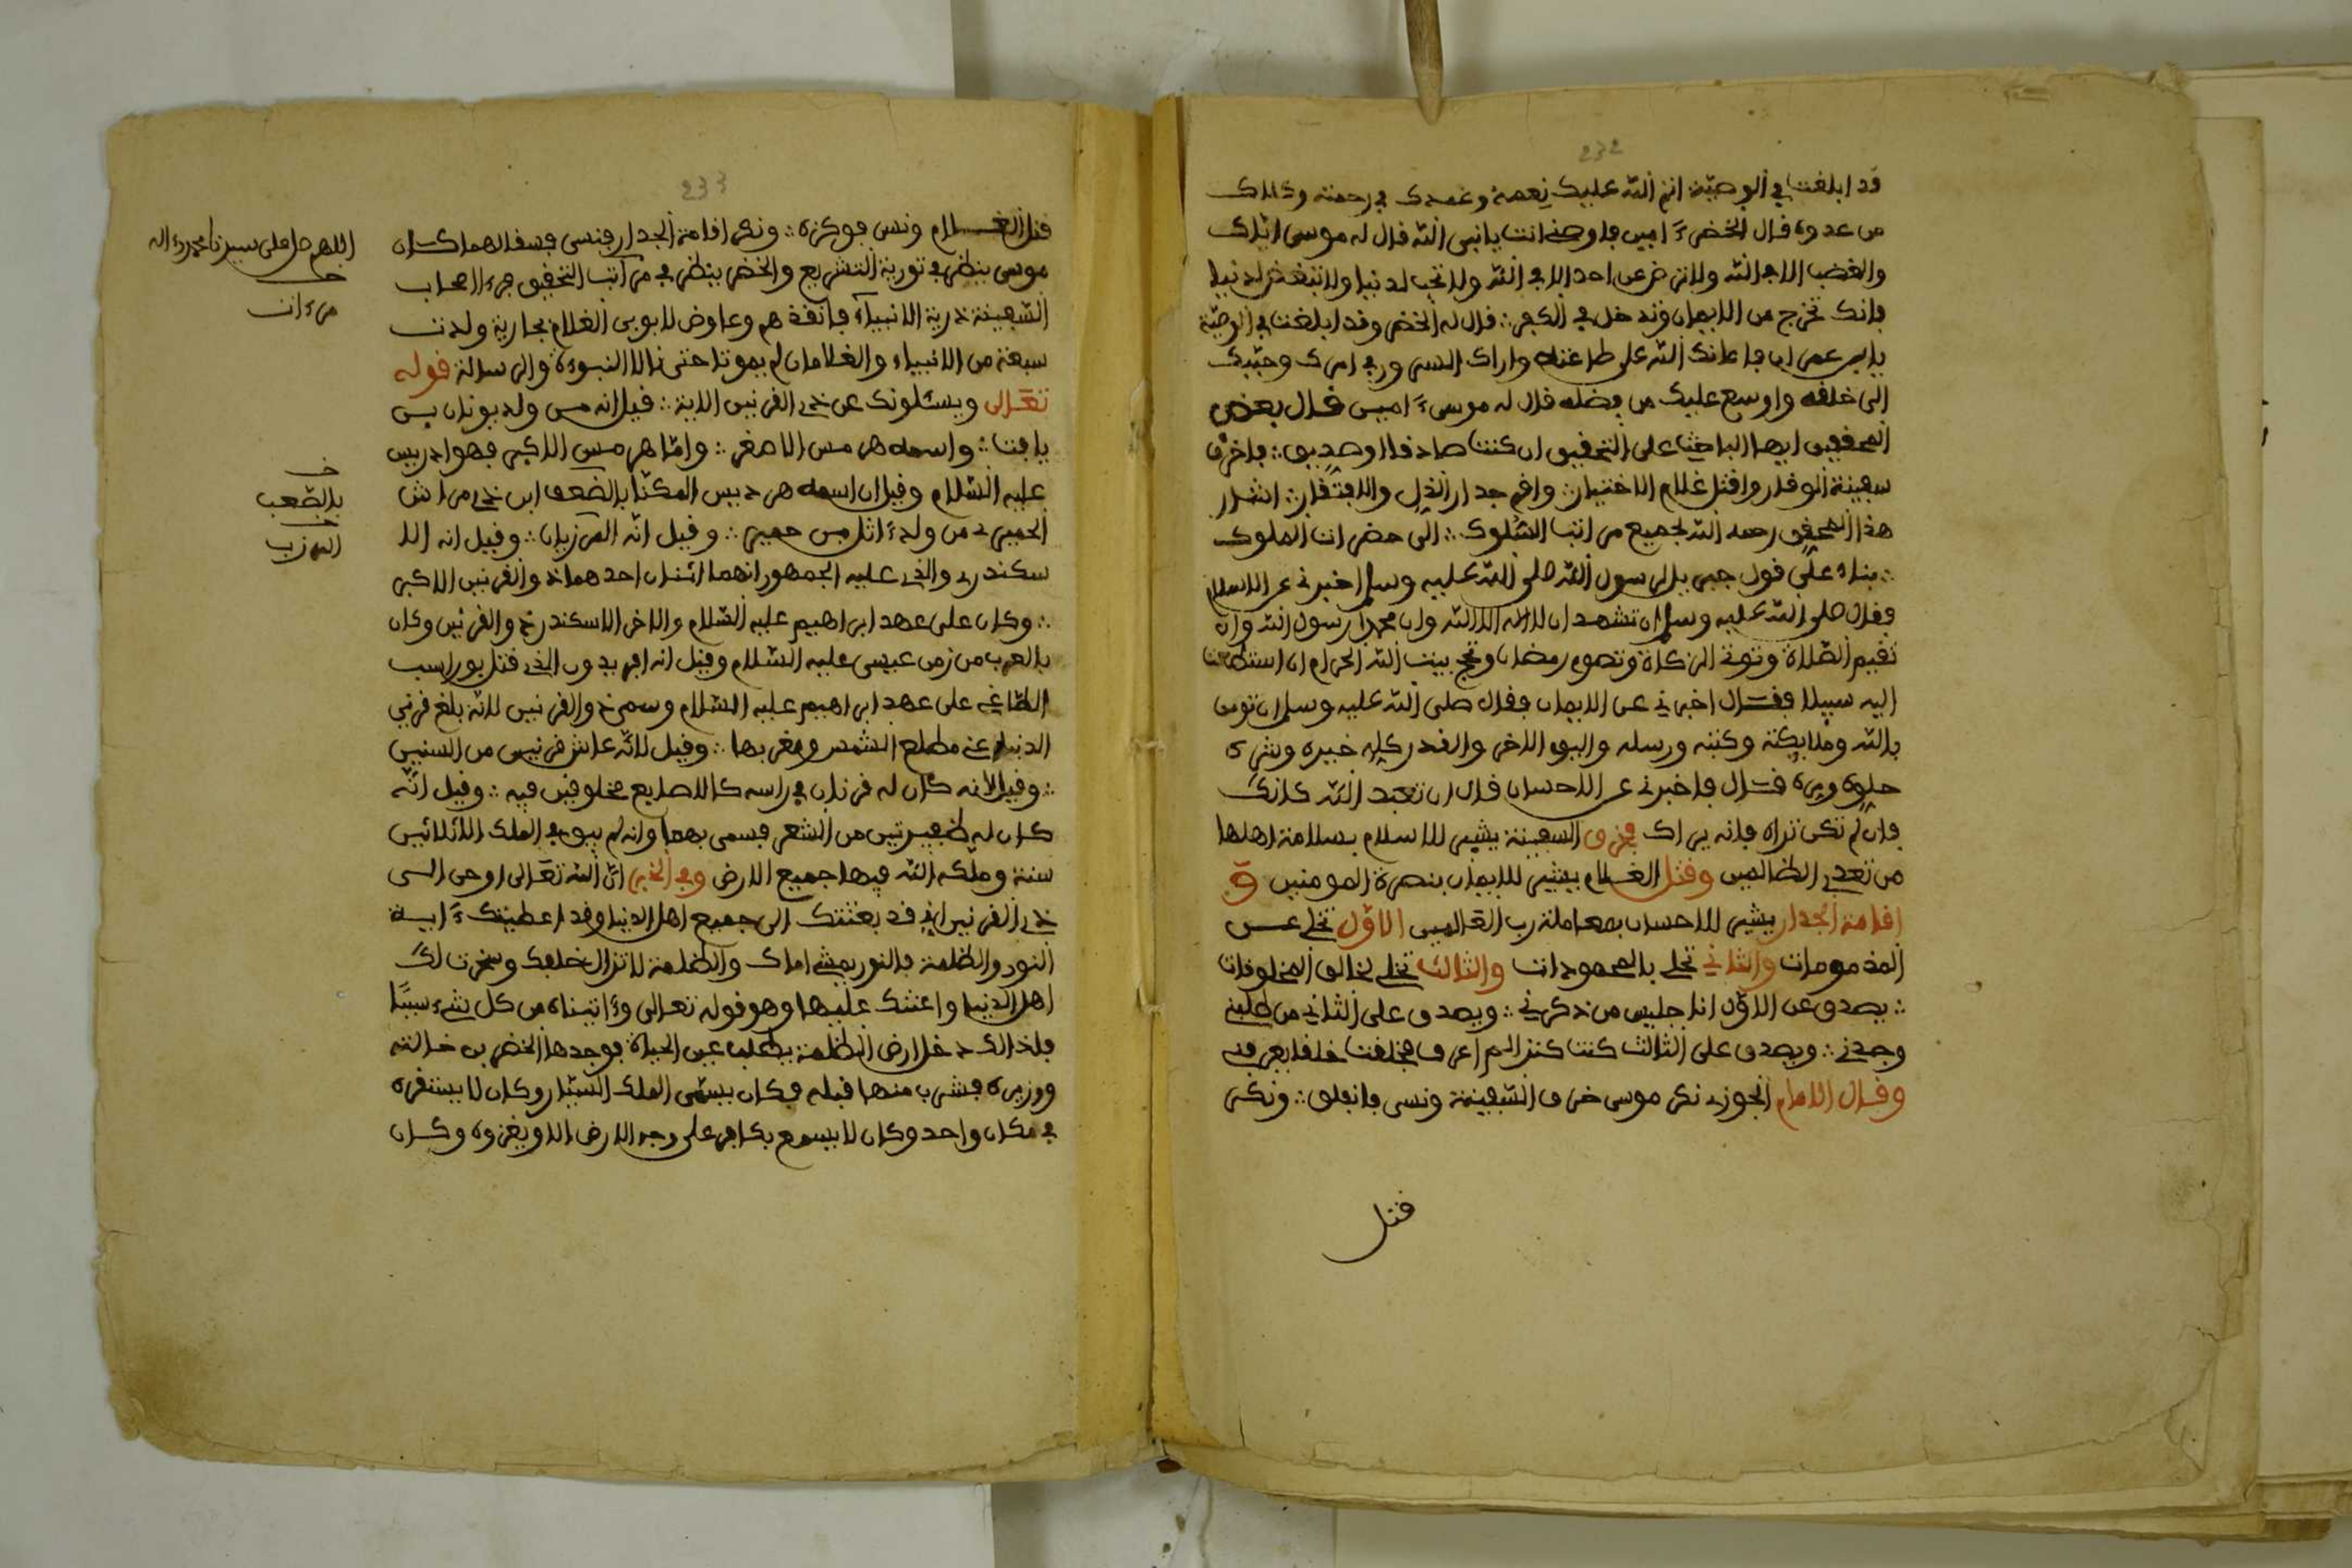 232
قد ابلغت في الوصية اتم الله عليك نعمة وغمدك في رحمته وكلاك
من عدوه قال الخضر ءامين فاوصني انت يا نبي الله قال له موسى اياك
والغضب الا في الله ولا ترض عن احد الا في الله ولا تحب لدنيا ولا تبغض لدنيا
فانك تخرج من الايمان وتدخل في الكفر ∴ قال له الخضر وقد ابلغت في الوصية
يا ابن عمران فاعانك الله على طاعته واراك السرور في امرك وحببك
الى خلقه واوسع عليك من فضله قال له موسى ءامين قال بعض
المحققين ايها الباحث على التحقيق ان كنت صادقا او صديق ∴ فاخرق
سفينة الوقار واقتل غلام الاختيار ∴ واقم جدار الذل والافتقار ∴ اشار
هذا المحقق رحمه الله لجميع مراتب السلوك ∴ الى حضرات الملوك
∴ بناء على قول جبريل لرسول الله صلى الله عليه وسلم اخبرني عن الاسلام
فقال صلى الله عليه وسلم ان تشهد ان لا اله الا الله وان محمدا رسول الله وان
تقيم الصلاة وتوتي الزكاة وتصوم رمضان وتحج بيت الله الحرام ان استطعت
اليه سبيلا فقال اخبرني عن الايمان فقال صلى الله عليه وسلم ان تومن
بالله وملايكته وكتبه ورسله واليوم الاخر والقدر كله خيره وشره
حلوه ومره قال فاخبرني عن الاحسان قال ان تعبد الله كانك
فان لم تكن تراه فانه يراك فخرق السفينة يشير للاسلام بسلامة اهلها
من تعدي الظالمين وقتل الغلام يشير للايمان بنصرة المومنين و
اقامة الجدار يشير للاحسان بمعاملة رب العالمين الاول تخلي عن
المذمومات والثاني تحلي بالمحمودات والثالث تخلي لخالق المخلوقات
∴ يصدق عن الاول انا جليس من ذكرني ∴ ويصدق على الثاني من طلبني
وجدني ∴ ويصدق على الثالث كنت كنزا لم اعرف فخلقت خلقا
وقال الامام الجوزي نكر موسى خرق السفينة ونسي فانفلق ∴ ونكر
قتل
233
قتل الغلام ونسي فوكزه ∴ ونكر اقامة الجدار فنسي فسقا لهما كان
موسى ينظر في تورية التشريع والخضر ينظر في مرآت التحقيق
السفينة ذرية الانبياء فانقذهم وعاوض لابوي الغلام بجارية ولدت
سبعة من الانبياء والغلامان لم يموتا حتى نالا النبوءة والرسالة قوله
تعالى ويسئلونك عن ذي القرنين الاية ∴ قيل انه من ولد يونان بن
يافت ∴ واسمه هرمس الاصغر ∴ واما هرمس الاكبر فهو ادريس
عليه السلام وقيل ان اسمه هرديس المكنا بالضعف ابن ذي مراش
الحميري من ولد حمير ∴ وقيل انه المرزبان ∴ وقيل انه الا
سكندر والذي عليه الجمهور انهما اثنان احدهما ذو القرنين الاكبر
∴ وكان على عهد ابراهيم عليه السلام والاخر الاسكندر ذو القرنين وكان
بالقرب من زمن عيسى عليه السلام وقيل انه افريدون الذي قتل بوراسب
الطاغي على عهد ابراهيم عليه السلام وسمي ذو القرنين لانه بلغ قرني
الدنيا عني مطلع الشمس ومغربها ∴ وقيل لانه عاش قرنين من السنين
∴ وقيل لانه كان له قرنان في راسه كالاصابع مخلوقين فيه ∴ وقيل انه
كان له ظفيرتين من الشعر فسمي بهما وانه لم يبق في الملك الا ثلاثين
سنة وملكه الله فيها جميع الارض وفي الخبر ان الله تعالى اوحى الى
ذي القرنين اني قد بعثتك الى جميع اهل الدنيا وقد اعطيتك ءاية
النور والظلمة فالنور يمشي امامك والظلمة لا تزال خلفك وسخرت لك
اهل الدنيا واعنتك عليها وهو قوله تعالى وءاتيناه من كل شيء سببا
فلذالك دخل ارض الظلمة يطلب عين الحياة فوجدها الخضر بن خالته
ووزيره فشرب منها قبله فكان يسمى الملك السيار وكان لا يستقره
في مكان واحد وكان لا يسمع بكافر على وجه الارض الا ويغزوه وكان
اللهم صل على سيدنا محمد وءاله
خ
مرءات
خ
بالضعب
خ
المرزب